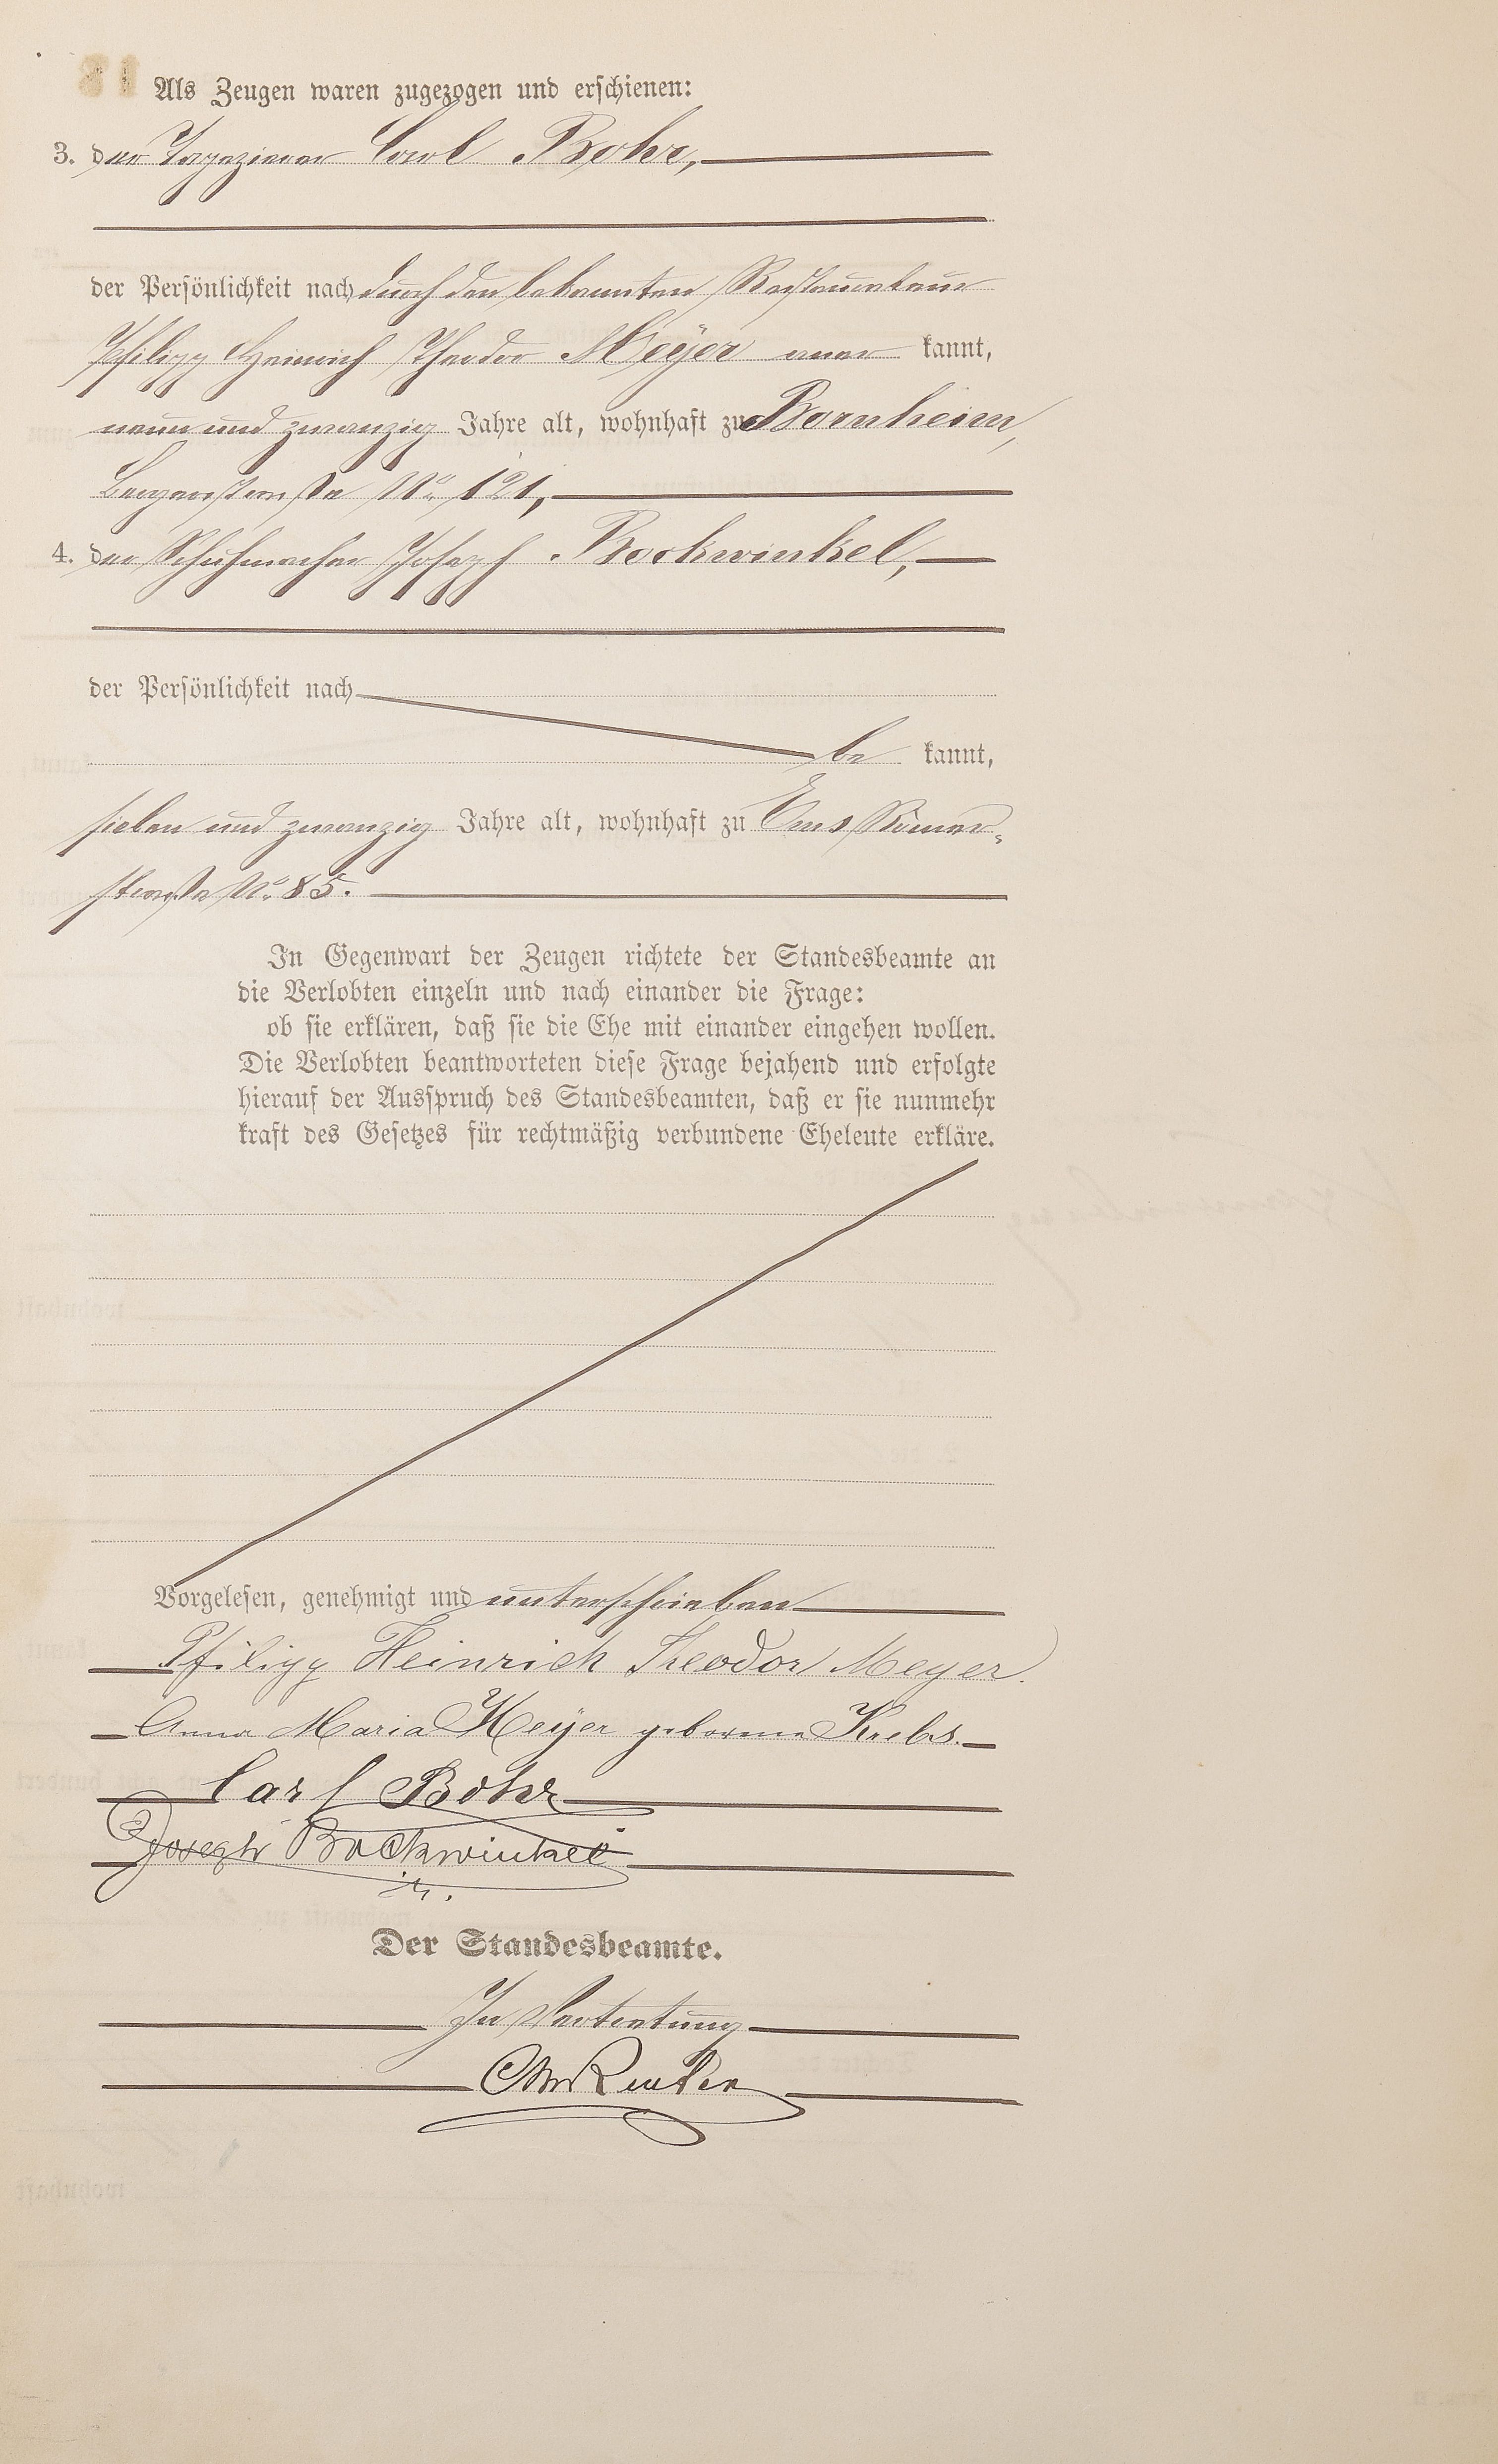 Als Zeugen waren zugezogen und erschienen:
3. der Tapezierer Carl Bohr,
der Persönlichkeit nach durch den bekannten Restaurateur
Philipp Heinrich Theodor Meÿer aner kannt,
neun und zwanzig Jahre alt, wohnhaft zu Bornheim,
Bergerstraße No. 121,
4. der Schuhmacher Joseph Bockwinkel,
der Persönlichkeit nach
be kannt,
sieben und zwanzig Jahre alt, wohnhaft zu Ems Römer-
straße No. 85.
In Gegenwart der Zeugen richtete der Standesbeamte an
die Verlobten einzeln und nach einander die Frage:
ob sie erklären, daß sie die Ehe mit einander eingehen wollen.
Die Verlobten beantworteten diese Frage bejahend und erfolgte
hierauf der Ausspruch des Standesbeamten, daß er sie nunmehr
kraft des Gesetzes für rechtmäßig verbundene Eheleute erkläre.
Vorgelesen, genehmigt und unterschrieben
Philipp Heinrich Theodor Meyer.
Anna Maria Meÿer geborene Krebs.
Carl Bohr
Joseph Bockwinkel
Der Standesbeamte.
In Vertretung